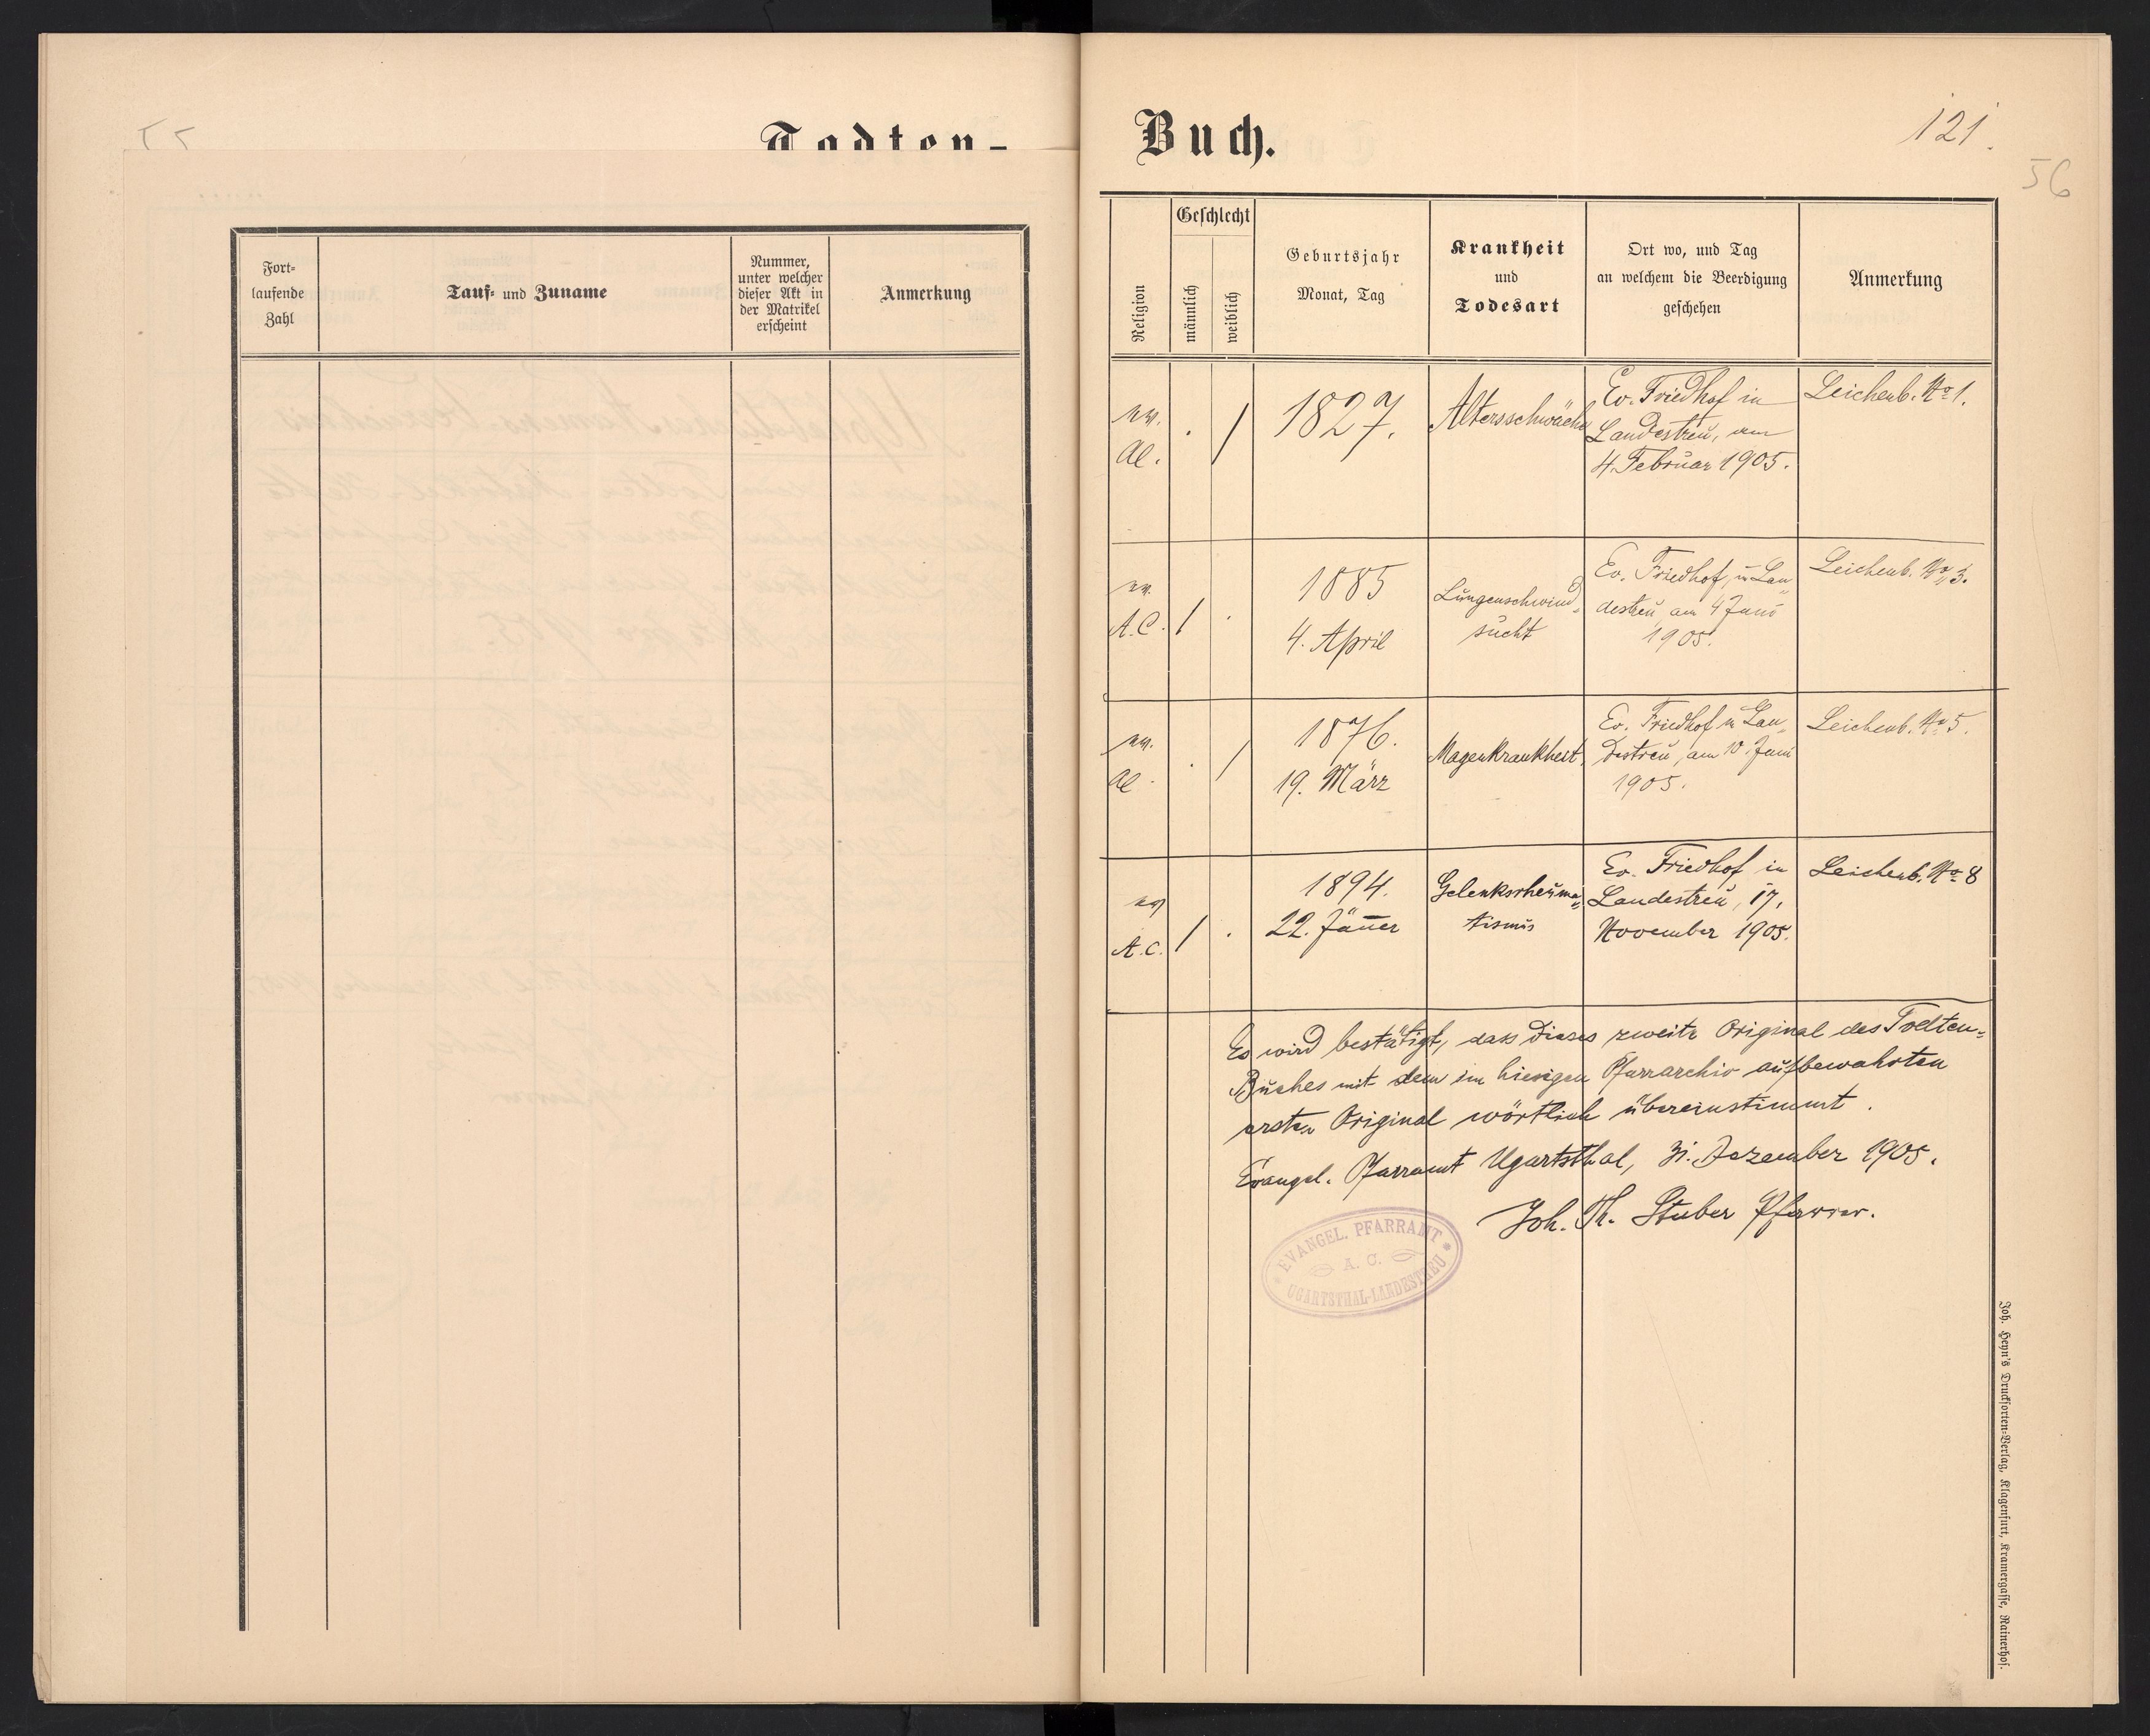 Todten-
Fort-
laufende
Zahl
Tauf- und Zuname
Nummer,
unter welcher
dieser Akt in
der Matrikel
erscheint
Anmerkung
Buch.
121.
56
Religion
Geschlecht
männlich
weiblich
Geburtsjahr
Monat, Tag
Krankheit
und
Todesart
Ort wo, und Tag
an welchem die Beerdigung
geschehen
Anmerkung
ev.
A.C.
1
1827.
Altersschwäche
Ev. Friedhof in
Landestreu, am
4. Februar 1905.
Leichenb. No 1.
ev.
A.C.
1
1885
4. April
Lungenschwind-
sucht
Ev. Friedhof, in Lan-
destreu, am 4 Juni
1905.
Leichenb. No 3.
ev.
A.C.
1
1876.
19. März
Magenkrankheit
Ev. Friedhof in Lan-
destreu, am 10 Juni
1905.
Leichenb. No 5.
ev
A.C.
1
1894.
22. Jänner
Gelenksrheuma-
tismus
Ev. Friedhof in
Landestreu, 17.
November 1905.
Leichenb. No 8
Es wird bestätigt, dass dieses zweite Original des Todten-
Buches mit dem im hiesigen Pfarrarchiv aufbewahrten
ersten Original wörtlich übereinstimmt.
Evangel. Pfarramt Ugartsthal, 31. Dezember 1905.
Joh. Th. Stuber Pfarrer.
EVANGEL. PFARRAMT
A. C.
UGARTSTHAL-LANDESTREU
Joh. Heyn's Drucksorten-Verlag, Klagenfurt, Kramergasse, Rainerhof.